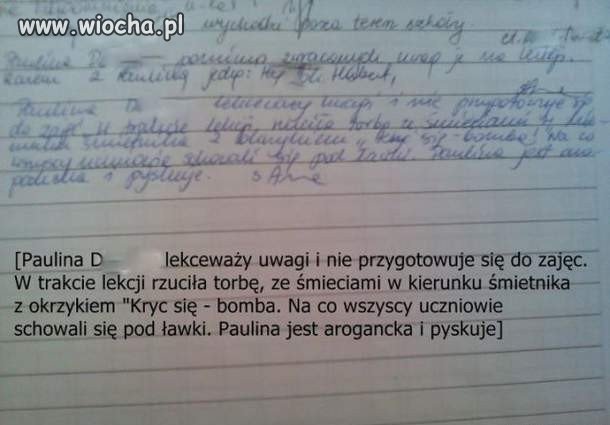 www.wiocha.pl
wychodzi poza teren szkoły.
Paulina D uwag je na lekcji.
Razem z Pauliną
Paulina D lekceważy uwagi i nie przygotowuje się
do zajęć. W trakcie lekcji rzuciła torbę ze śmieciami w kie-
runku śmietnika z okrzykiem "Kryć się - bomba! Na co
wszyscy uczniowie schowali się pod ławki. Paulina jest aro-
gancka i pyskuje.
[Paulina D lekceważy uwagi i nie przygotowuje się do zajęc.
W trakcie lekcji rzuciła torbę, ze śmieciami w kierunku śmietnika
z okrzykiem "Kryc się - bomba. Na co wszyscy uczniowie
schowali się pod ławki. Paulina jest arogancka i pyskuje]